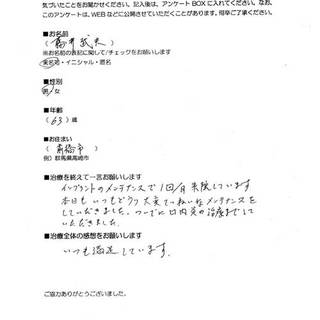 気づいたことをお聞かせください。記入後は、アンケートBOXに入れてください。なお、
このアンケートは、WEBなどに公開させていただくことがあります。何卒ご了承ください。
■お名前
（藤井 武夫）
※お名前の表記に関して✓チェックをお願いします
実名可・イニシャル・匿名
■性別
男・女
■年齢
（63）歳
■お住まい
（前橋市）
例）群馬県高崎市
■治療を終えて一言お願いします
インプラントのメンテナンスで1回/月来院しています
本日も、いつもどうり大変ていねいなメンテナンスを
していただきました。ついでに口内炎の治療までして
いただきました。
■治療全体の感想をお願いします
いつも満足しています。
ご協力ありがとうございました。